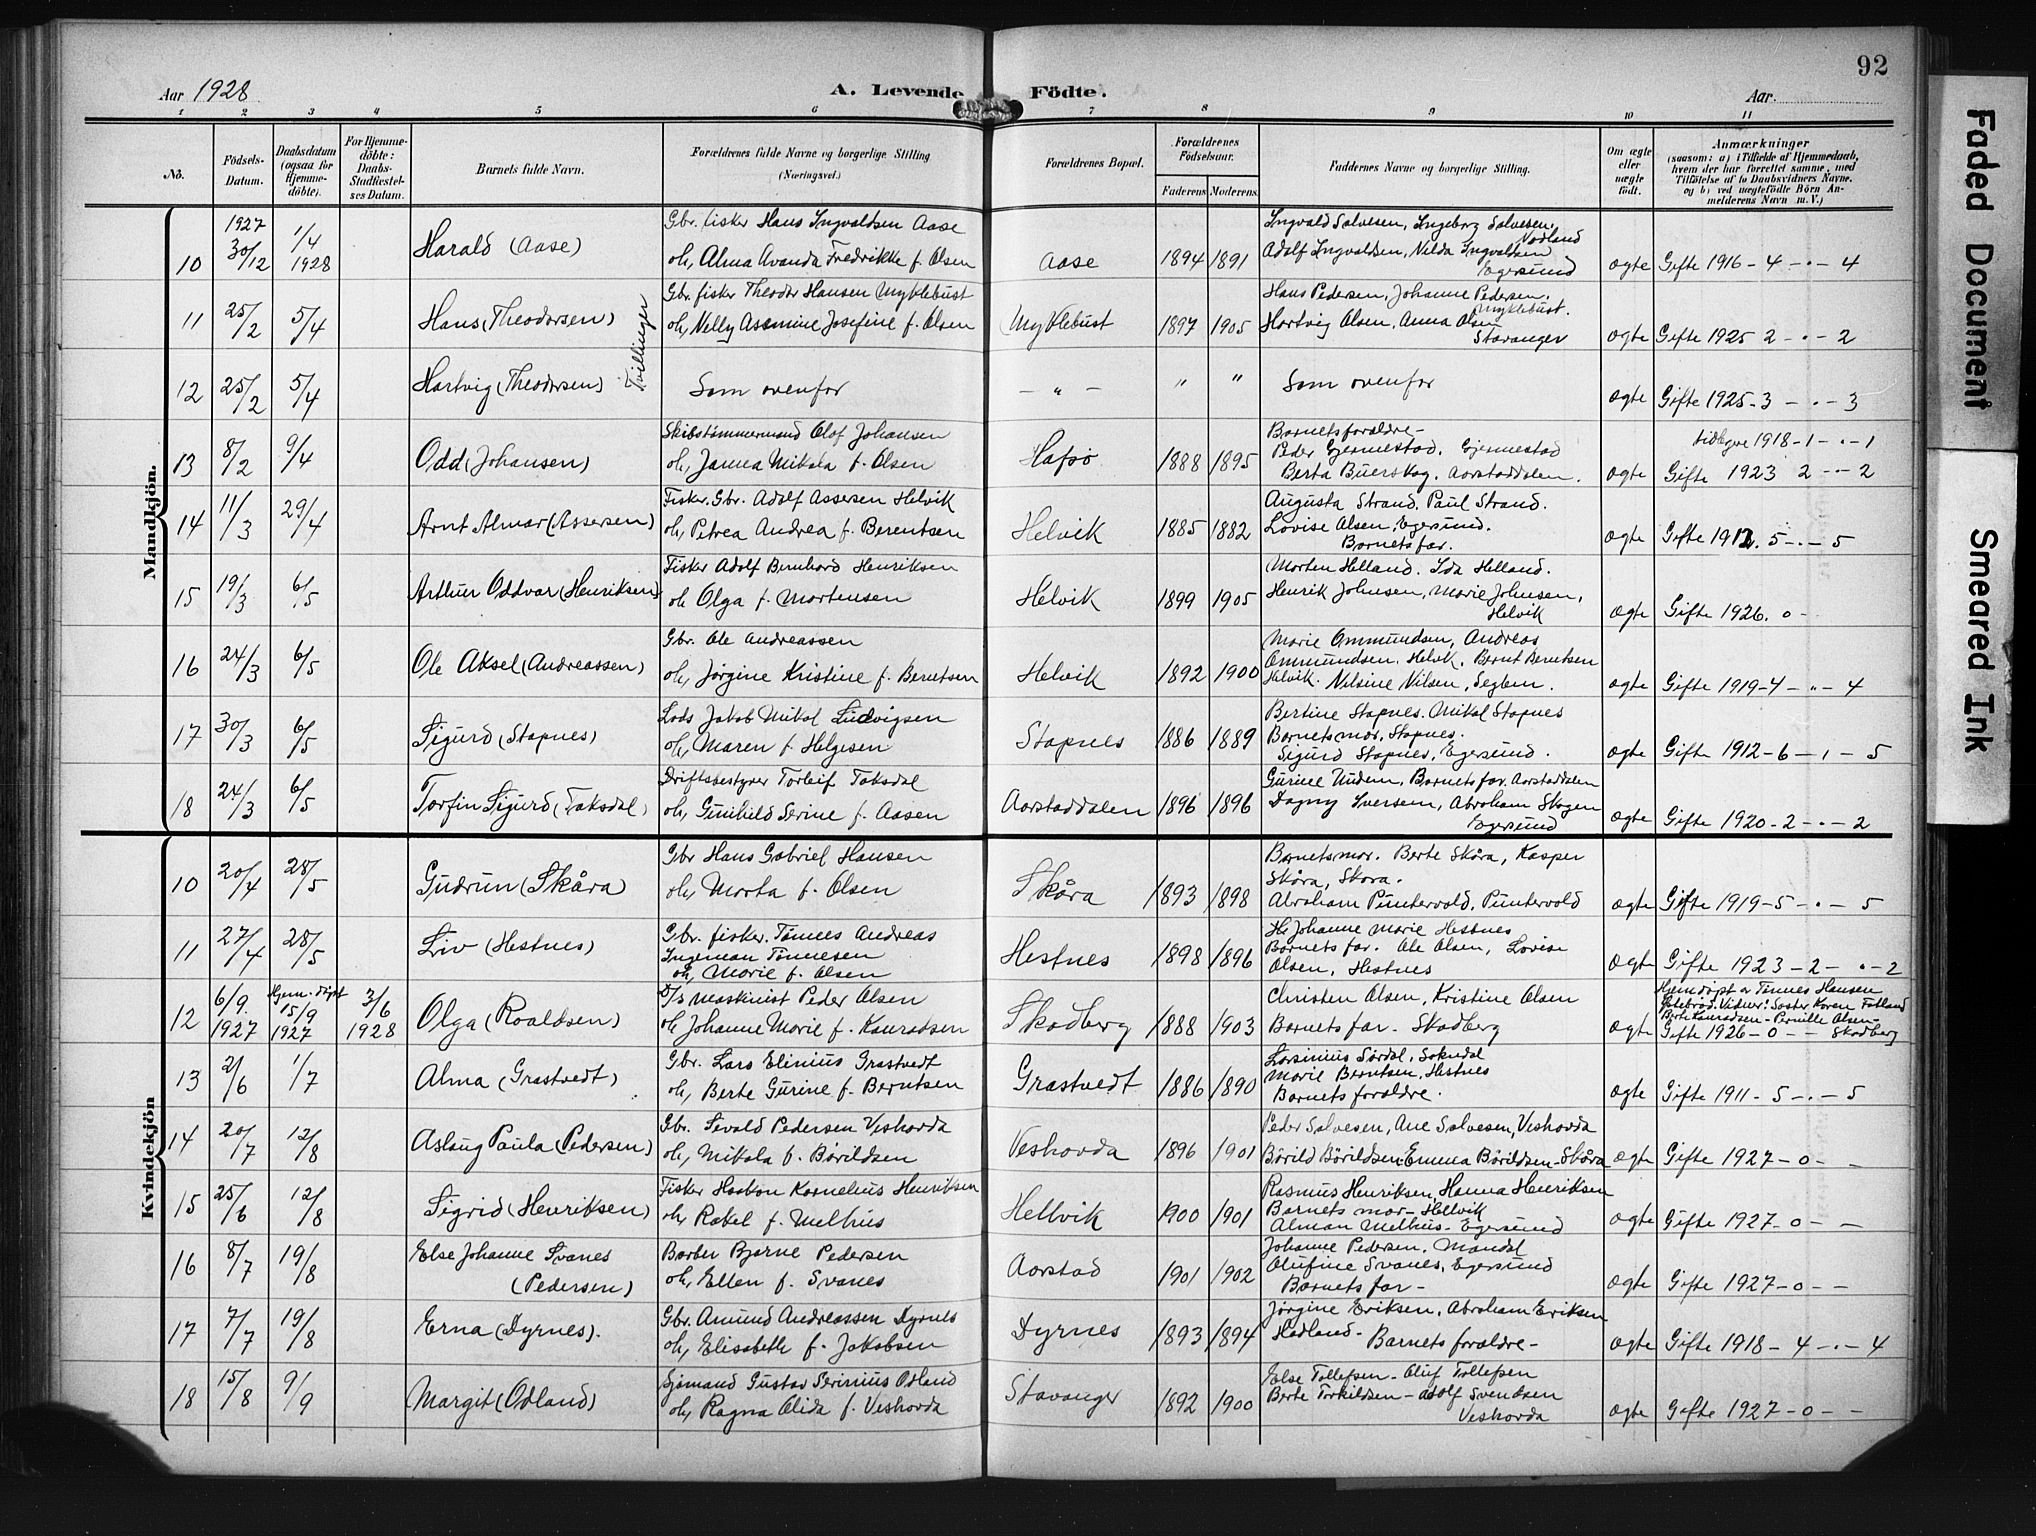 92
Aar 1928
A. Levende Födte.
Aar.
1 2 3 4 5 6 7 8 9 10 11
No.
Födsels-Datum.
Daabsdatum (ogsaa for Hjemme-döbte).
For Hjemme-döbte: Daabs-Stadfæstel-ses Datum.
Barnets fulde Navn.
Forældrenes fulde Navne og borgerlige Stilling (Næringsvei.)
Forældrenes Bopæl.
Forældrenes Födselsaar.
Faderens. Moderens.
Faddernes Navne og borgerlige Stilling.
Om ægte eller uægte födt.
Anmærkninger
(saasom: a) i Tilfælde af Hjemmedaab, hvem der har forrettet samme, med Tilföielse af to Daabsvidners Navne, og b) ved uægtefödte Börn An-melderens Navn m. V.)
Mandkjön.
10 1927 30/12 1/4 1928 Harald (Aase)
Gbr. fisker Hans Ingvaldsen Aase
oh, Alma Avanda Fredrikke f. Olsen
Aase 1894 1891
Ingvald Salvesen, Ingeborg Salvesen, Vadland
Adolf Ingvaldsen, Nilda Ingvaldsen
Egersund
ægte Gifte 1916 - 4 - · - 4
11 25/2 5/4 Hans (Theodorsen)
Tvillinger
Gbr. fisker Theodor Hansen Myklebust
oh, Nelly Asemine Josefine f. Olsen
Myklebust 1897 1905
Hans Pedersen, Johanne Pedersen,
Myklebust.
Hartvig Olsen, Anna Olsen
Stavanger
ægte Gifte 1925 2 - · - 2
12 25/2 5/4 Hartvig (Theodorsen)
Som ovenfor
- " - " " Som ovenfor
ægte Gifte 1925 - 3 - · - 3
13 8/2 9/4 Odd (Johansen)
Skibstømmermand Olof Johansen
oh, Janna Mikala f. Olsen
Hafsø 1888 1895
Barnets forældre -
Peder Gjermestad, Gjermestad
Berta Buerskog, Aarstaddalen.
ægte tidligere 1918 - 1 - · - 1
Gifte 1923 2 - · - 2
14 11/3 29/4 Arnt Almar (Assersen)
Fisker. Gbr. Adolf Assersen Helvik
oh, Petrea Andrea f. Berentsen
Helvik 1885 1882
Augusta Strand, Paul Strand.
Lovise Olsen, Egersund.
Barnets far.
ægte Gifte 1912. 5 - · - 5
15 19/3 6/5 Arthur Oddvar (Henriksen)
Fisker Adolf Bernhard Henriksen
oh Olga f. Mortensen
Helvik 1899 1905
Morten Helland. Ida Helland.
Henrik Johnsen, Marie Johnsen,
Helvik
ægte Gifte 1926. 0 -
16 24/3 6/5 Ole Aksel (Andreassen)
Gbr. Ole Andreassen
oh, Jørgine Kristine f. Berntsen
Helvik 1892 1900
Marie Ommundsen, Andreas
Ommundsen, Helvik. Bernt Berntsen
Helvik. Nilsine Nilsen, Seglem.
ægte Gifte 1919 - 4 - " - 4
17 30/3 6/5 Sigurd (Stapnes)
Lods Jakob Mikal Ludvigsen
oh, Maren f. Helgesen
Stapnes 1886 1889
Bertine Stapnes. Mikal Stapnes
Barnets mor, Stapnes.
Sigurd Stapnes, Egersund.
ægte Gifte 1912 - 6 - , - 5
18 24/3 6/5 Torfin Sigurd (Taksdal)
Driftsbestyrer Torleif Taksdal
oh, Gunhild Serine f. Aasen
Aarstaddalen 1896 1896
Gurine Undem, Barnets far, Aarstaddalen
Dagny Iversen, Abraham Skogen
Egersund
ægte Gifte 1920 - 2 - · - 2
Kvindekjön
10 20/4 28/5 Gudrun (Skåra)
Gbr Hans Gabriel Hansen
oh, Marta f. Olsen
Skåra 1893 1898
Barnets mor. Berte Skåra, Kasper
Skåra, Skåra.
Abraham Puntervold, Puntervold
ægte Gifte 1919 - 5 - · - 5
11 27/4 28/5 Liv (Hestnes)
Gbr. fisker. Tønnes Andreas
Ingeman Tønnesen
oh, Marie f. Olsen
Hestnes 1898 1896
Johanne Marie Hestnes
Barnets far. Ole Olsen, Lovise
Olsen, Hestnes
ægte Gifte 1923 - 2 - · - 2
12 6/9. 1927 Hjem. døpt 15/9 1927 3/6 1928 Olga (Roaldsen)
D/s maskinist Peder Olsen
oh Johanne Marie f. Konradsen
Skadberg 1888 1903
Christen Olsen, Kristine Olsen
Barnets far - Skadberg
ægte Hjemdøpt av Tønnes Hansen
Vidner: Søster Karen Fotland
Berte Konradsen - Pernille Olsen -
Gifte 1926 - 0 - - Skadberg
13 2/6 1/7 Alma (Grastvedt)
Gbr. Lars Elinius Grastvedt
oh, Berte Gurine f. Berntsen
Grastvedt 1886 1890
Larsinius Sørdal, Sokndal
Marie Berntsen, Hestnes
Barnets forældre.
ægte Gifte 1911 - 5 - · - 5
14 20/7 12/8 Aslaug Paula (Pedersen)
Gbr. Sevald Pedersen Veshovda
oh, Mikala f. Børildsen
Veshovda 1896 1901
Peder Salvesen, Ane Salvesen, Veshovda
Børild Børildsen - Emma Børildsen - Skåra
ægte Gifte 1927 - 0 - -
15 25/6 12/8 Sigrid (Henriksen)
Fisker Haakon Kornelius Henriksen
oh, Rakel f. Melhus
Hellvik 1900 1901
Rasmus Henriksen, Hanna Henriksen
Barnets mor - Hellvik
Alman Melhus - Egersund
ægte Gifte 1927 - 0 - -
16 8/7 19/8 Else Johanne Svanes
(Pedersen)
Barber Bjarne Pedersen
oh, Ellen f. Svanes
Aarstad 1901 1902
Johanne Pedersen, Mandal
Olufine Svanes, Egersund
Barnets far -
ægte Gifte 1927 - 0 - -
17 7/7 19/8 Erna (Dyrnes).
Gbr. Amund Andreassen Dyrnes
oh, Elisabeth f. Jakobsen
Dyrnes 1893 1894
Jørgine Eriksen, Abraham Eriksen
Hadland - Barnets forældre -
ægte Gifte 1918 - 4 - · - 4
18 15/8 9/9 Margit (Odland)
Sjømand Gustav Serinius Odland
oh, Ragna Alida f. Veshovda
Stavanger 1892 1900
Else Tollefsen - Oluf Tollefsen
Berte Torkildsen - Adolf Svendsen
Veshovda
ægte Gifte 1927 - 0 - -
Faded Document
Smeared Ink